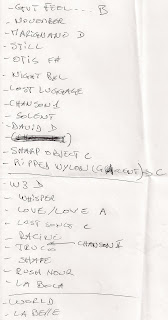 - GUT FEEL.... B
- NOVEMBER
- MARIGNANO D
- STILL
- OTIS F#
- NIGHT BEL
- LOST LUGGAGE
- CHANSON 1
- SOLENT
- DAVID D
- SHARP OBJECT C
- RIPPED NYLON (G C
- W3 D
- WHISPER
- LOVE/LOVE A
- LAST SONG C
- RACING
CHANSON II
- TRUCO
- SHAPE
- RUSH HOUR
- LA BOCA
- WORLD
- LA BELLE